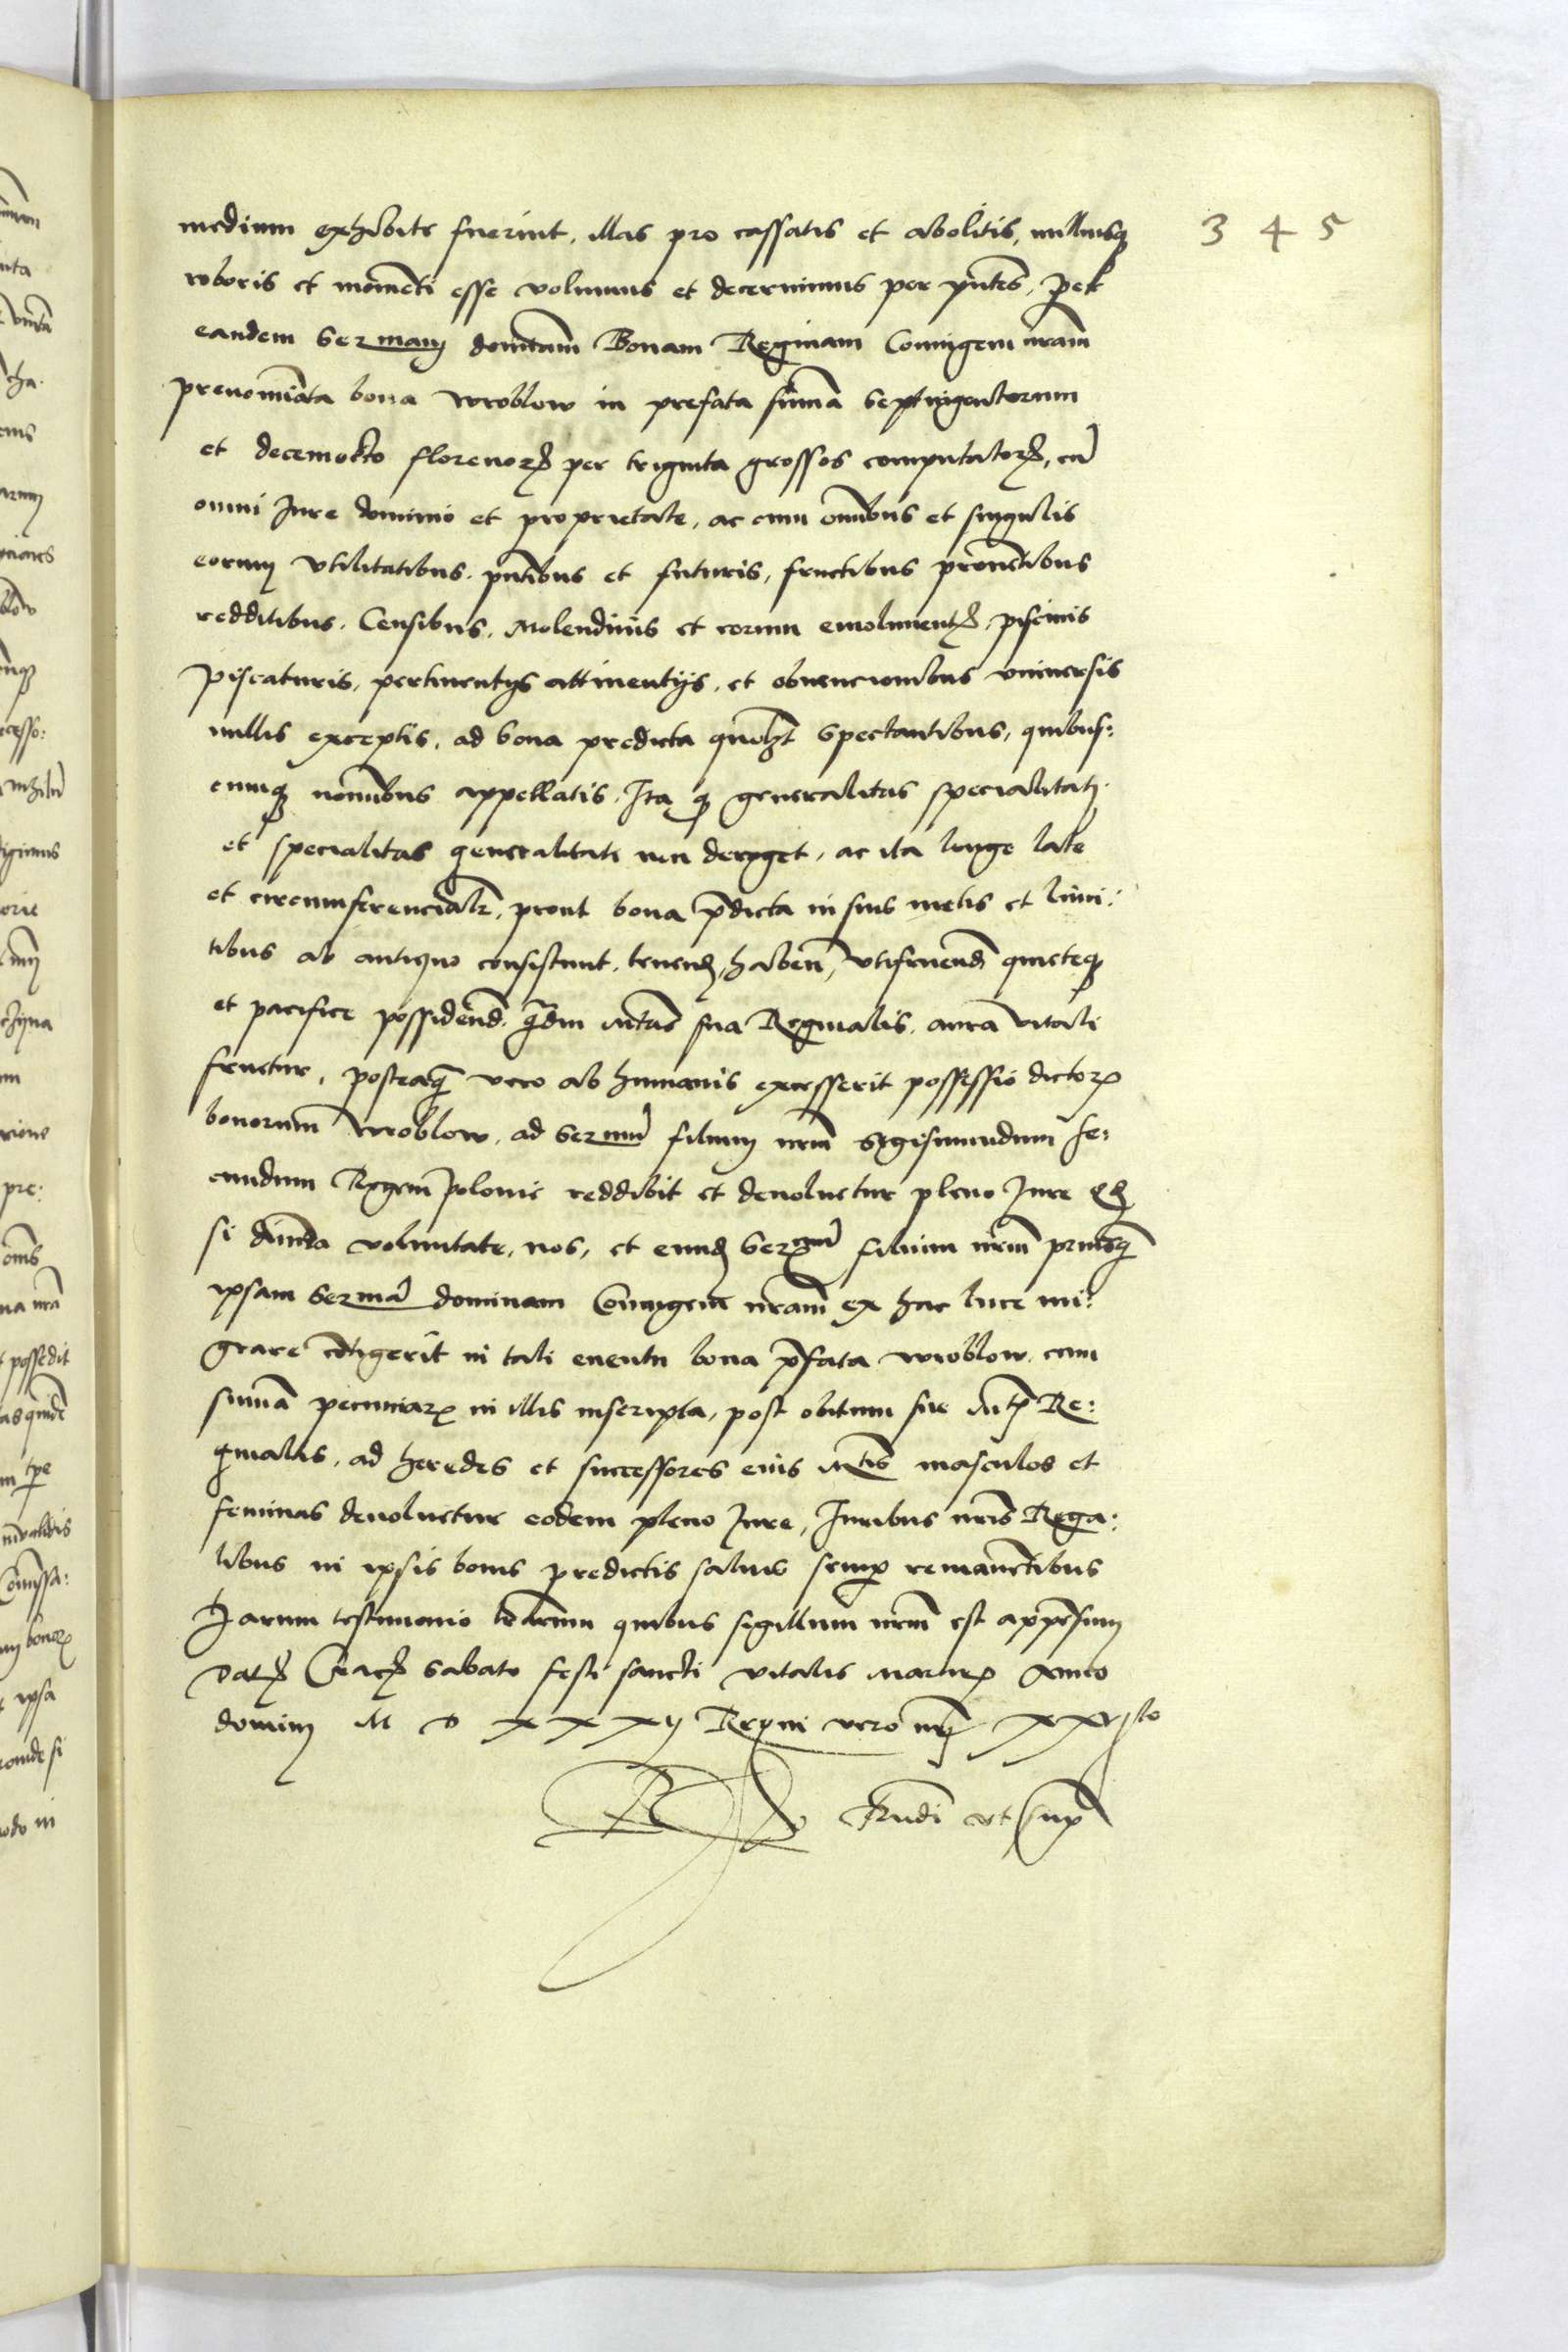 345
medium exhibite fuerint, illas pro cassatis et abolitis, nulliusq
roboris et momēti esse volumus et decernimus per pn̄tes, per
eandem Sermam domīam Bonam Reginam Coniugem nr̄am
prenomīata bona Wroblow in prefata sūma Septingentorum
et decemocto florenor per triginta grossos computator, cū
omni Jure dominio et proprietate, ac cum om̄ibus et singulis
eorum vtilitatibus pn̄tibus et futuris, fructibus prouētibus
redditibus, Censibus, Molendinis et eorum emolument, piscinis
piscaturis, pertinentijs attinentijs, et obuencionibus vniuersis
nullis exceptis, ad bona predicta quolȝt spectantibus, quibus:
cumq nominibus appellatis, Ita q generalitas specialitati
et specialitas generalitati non deroget, ac ita longe late
et circumferencialr, prout bona p̄dicta in suis metis et limi:
tibus ab antiquo consistunt, tenend, haben, vtifruend quieteq
et pacifice possidend, q̄diu Mtas sua Reginalis, aura vitali
fruetur, posteaq̄ vero ab humanis excesserit possessio dictor
bonorum Wroblow, ad Sermū filium nr̄m Sigismundum se:
cundum Regem Polonie reddibit et deuoluetur pleno Jure Qd
si diuina voluntate, nos, et eund Sermū filium nr̄m priusq̄
ipsam Sermā dominam Coniugem nr̄am ex hac luce mi:
grare cōtigerit in tali euentu bona p̄fata Wroblow, cum
summa pecuniar in illis inscripta, post obitum sue Mtis Re:
ginalis, ad heredes et successores eius Mtis masculos et
feminas deuoluetur eodem pleno Jure, Juribus nr̄is Rega:
libus in ipsis bonis predictis saluis semp remanētibus
Harum testimonio lr̄arum quibus sigillum nr̄m est appēsum
Dat Crac Sabato festi sancti Vitalis Martir Anno
domini M D XXXij Regni vero nr̄i XXVjto
Rudi vt sup